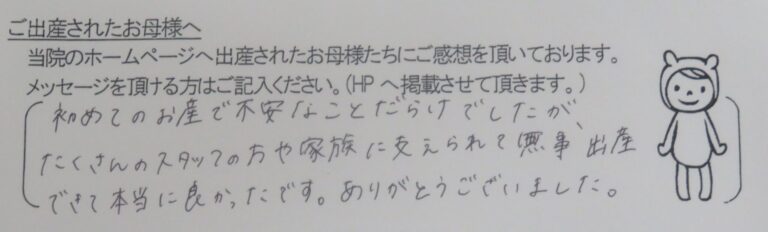 ご出産されたお母様へ
当院のホームページへ出産されたお母様たちにご感想を頂いております。
メッセージを頂ける方はご記入ください。(HPへ掲載させて頂きます。)
初めてのお産で不安なことだらけでしたが、
たくさんのスタッフの方や家族に支えられて無事出産
できて本当に良かったです。ありがとうございました。